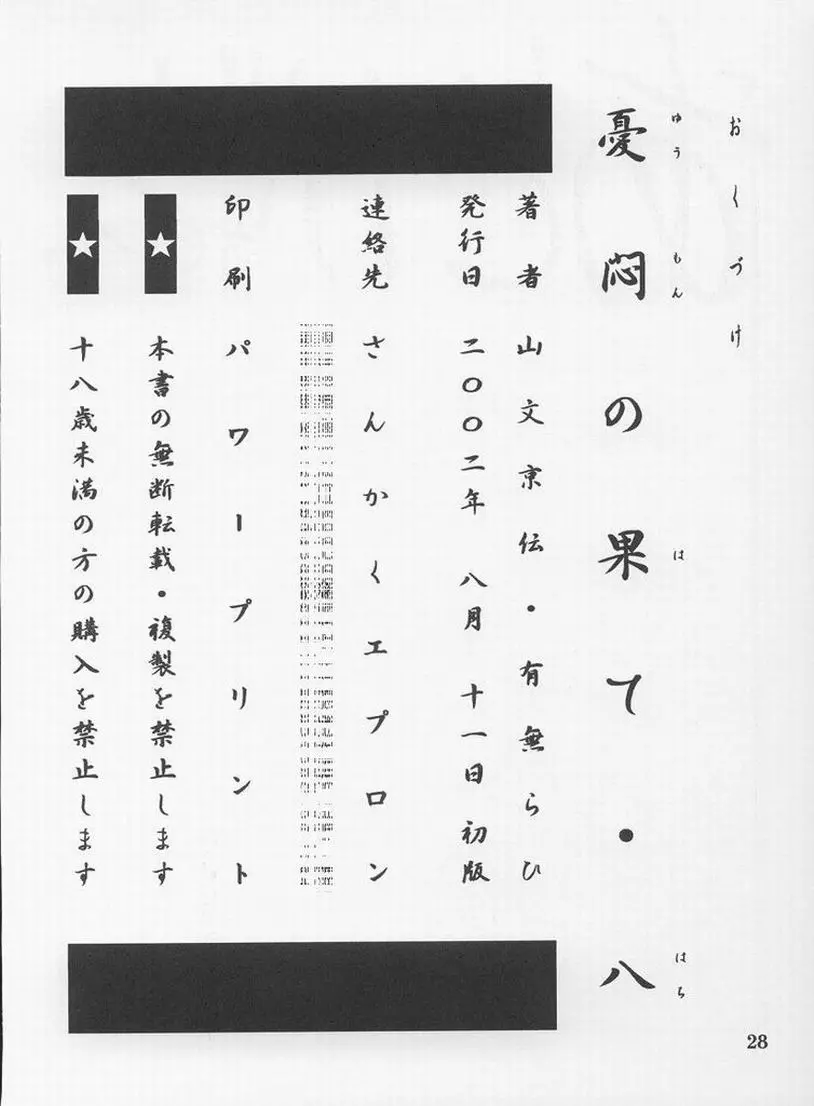 おくづけ
ゆうもん は はち
憂悶の果て・八
著者 山文京伝・有無らひ
発行日 二〇〇二年 八月 十一日 初版
連絡先 さんかくエプロン
印刷 パワープリント
★ 本書の無断転載・複製を禁止します
★ 十八歳未満の方の購入を禁止します
28